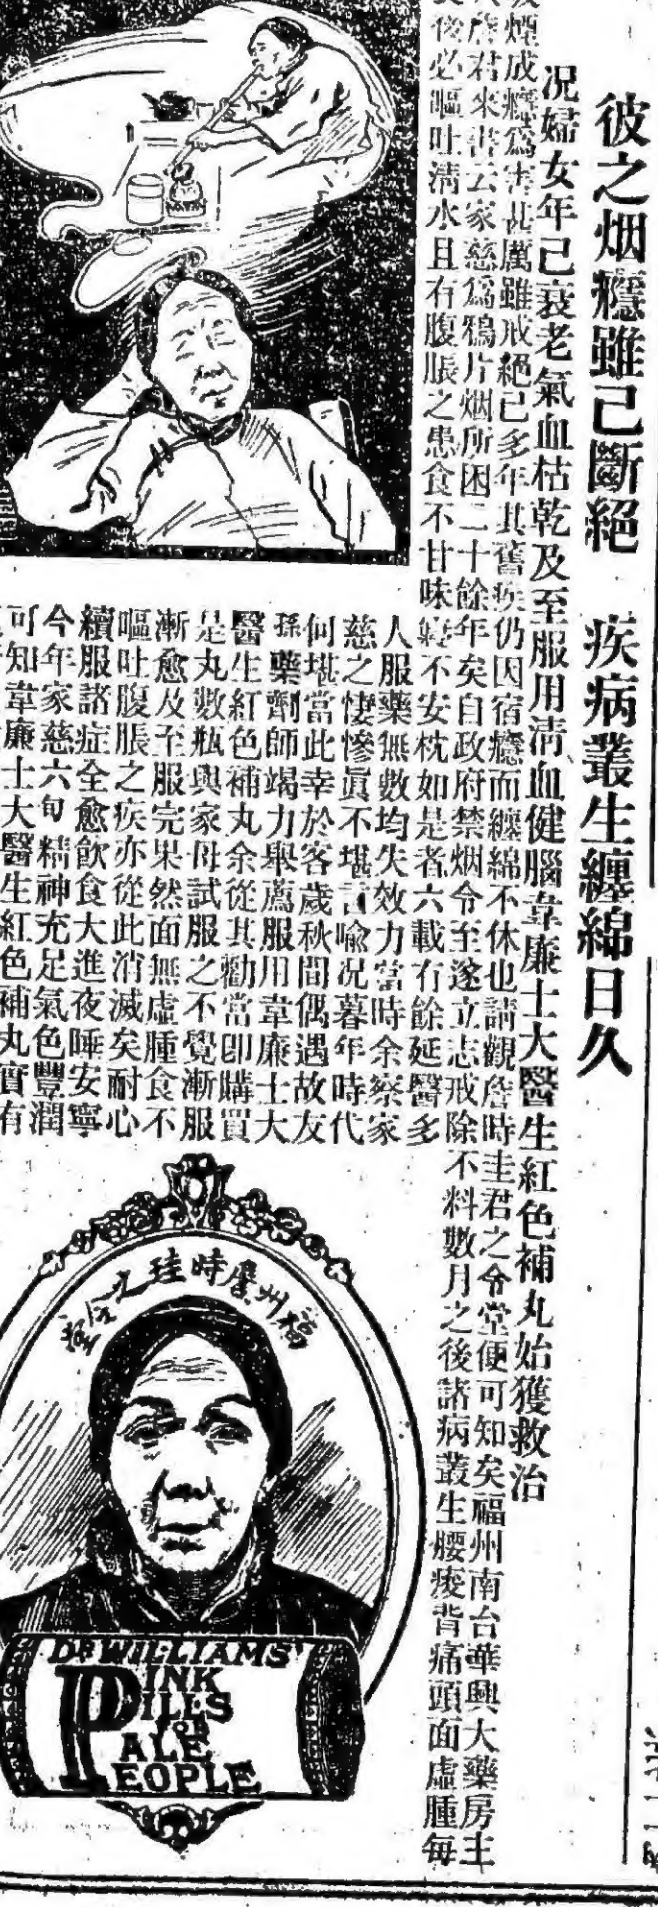 彼之烟癮雖已斷絕　疾病叢生纏綿日久
况婦女年已衰老氣血枯乾及至服用清血健腦韋廉士大醫生紅色補丸始獲救治
煙成癮為害甚厲雖戒絕已多年其舊疾仍因宿癮而纏綿不休也請觀詹時圭君之令堂便可知矣福州南台華興大藥房主
詹君來書云家慈為鴉片烟所困二十餘年矣自政府禁烟令至遂立志戒除不料數月之後諸病叢生腰痠背痛頭面虛腫每
後必嘔吐清水且有腹脹之患食不甘味寢不安枕如是者六載有餘延醫多
人服藥無數均失效力當時余察家
慈之悽慘眞不堪言喻况暮年時代
何堪當此幸於客歲秋間偶遇故友
孫藥劑師竭力舉薦服用韋廉士大
醫生紅色補丸余從其勸當卽購買
是丸數瓶與家母試服之不覺漸服
漸愈及至服完果然面無虛腫食不
嘔吐腹脹之疾亦從此消滅矣耐心
續服諸症全愈飲食大進夜睡安寧
今年家慈六旬精神充足氣色豐潤
可知韋廉士大醫生紅色補丸實有
福州詹時珪之令堂
DR WILLIAMS'
PINK
PILLS
FOR
PALE
PEOPLE